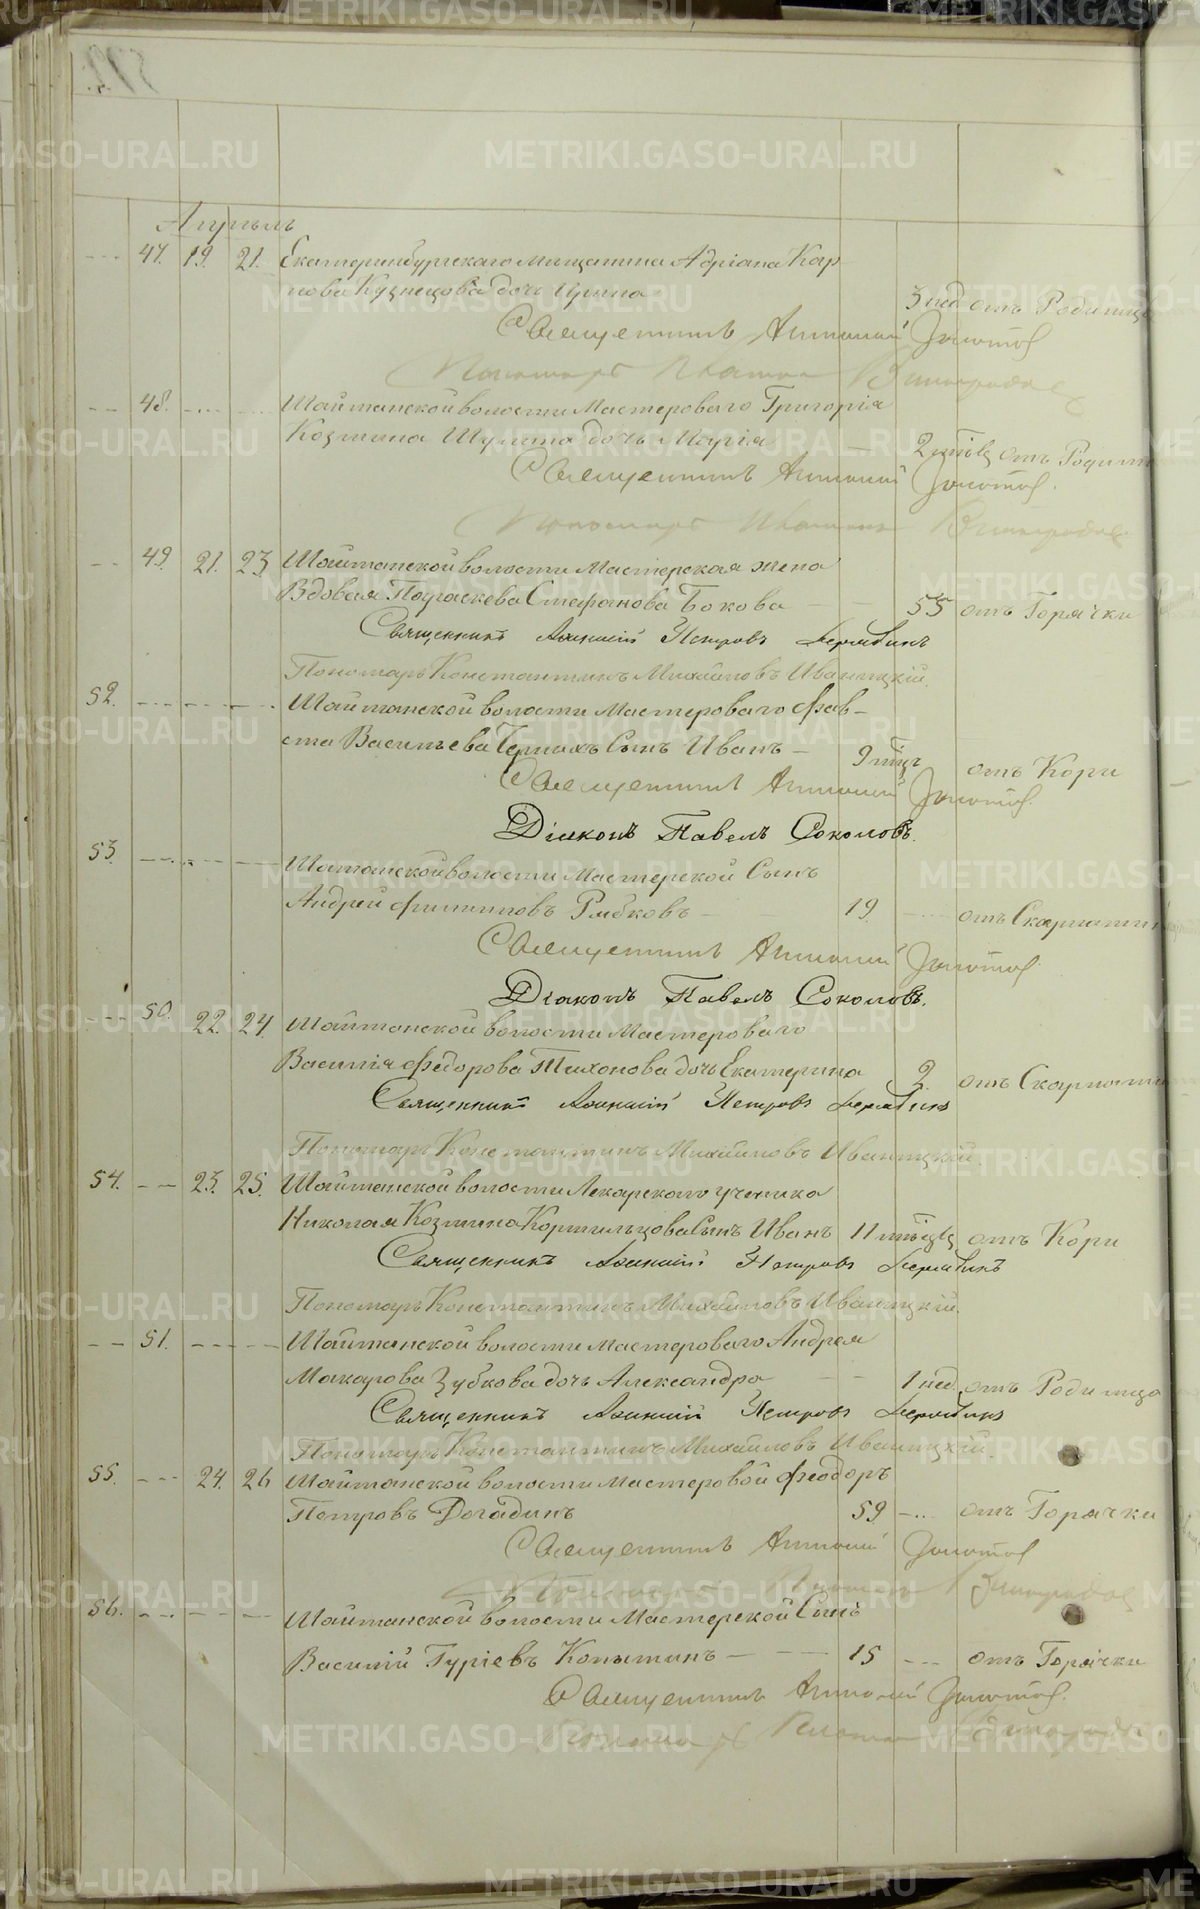 Апрѣль
47. 19. 21. Екатеринбургскаго мѣщанина Адріана Кар
пова Кузнецова дочь Ирина 3 нед отъ Родимца
Священникъ Аѳанасій Золотов
Пономарь Виноградов
48. Шайтанской волости Мастероваго Григорія
Козмина дочь Марія 2 отъ Родим
Священникъ Золотов.
Пономарь Виноградов
49. 21. 23 Шайтанской волости Мастерская жена
Вдовая Параскева Стефанова Бокова 55 отъ Горячки
Священникъ Петровъ
Пономарь Константинъ Михайловъ Иваницкій.
52. Шайтанской волости Мастероваго Фав-
ста Васильева Сынъ Иванъ 9 мѣц отъ Кори
Священникъ Золотов.
Діаконъ Павелъ Соколовъ.
53. Шайтанской волости Мастерской Сынъ
Андрей Филипповъ Рыбковъ 19 отъ Скарлатин
Священникъ Золотов.
Діаконъ Павелъ Соколовъ.
50. 22. 24. Шайтанской волости Мастероваго
Василія Федорова Тихонова дочь Екатерина 2. отъ Скарлатин
Священникъ Петровъ
Пономарь Константинъ Михайловъ Иваницкій.
54. 23. 25. Шайтанской волости Лекарскаго ученика
Николая Козмина Кормильцова Сынъ Иванъ 11 мѣсяц отъ Кори
Священникъ Петровъ
Пономарь Константинъ Михайловъ Иваницкій.
51. Шайтанской волости мастероваго Андрея
Макарова Зубкова дочь Александра 1 нед. отъ Родимца
Священникъ Петровъ
Пономарь Константинъ Михайловъ Иваницкій.
55. 24. 26 Шайтанской волости мастеровой Феодоръ
Петровъ Догадинъ 59 отъ Горячки
Священникъ Золотов
Виноградов
56. Шайтанской волости Мастерской Сынъ
Василій Гуріевъ Копытинъ 15 отъ Горячки
Священникъ Золотов.
METRIKI.GASO-URAL.RU